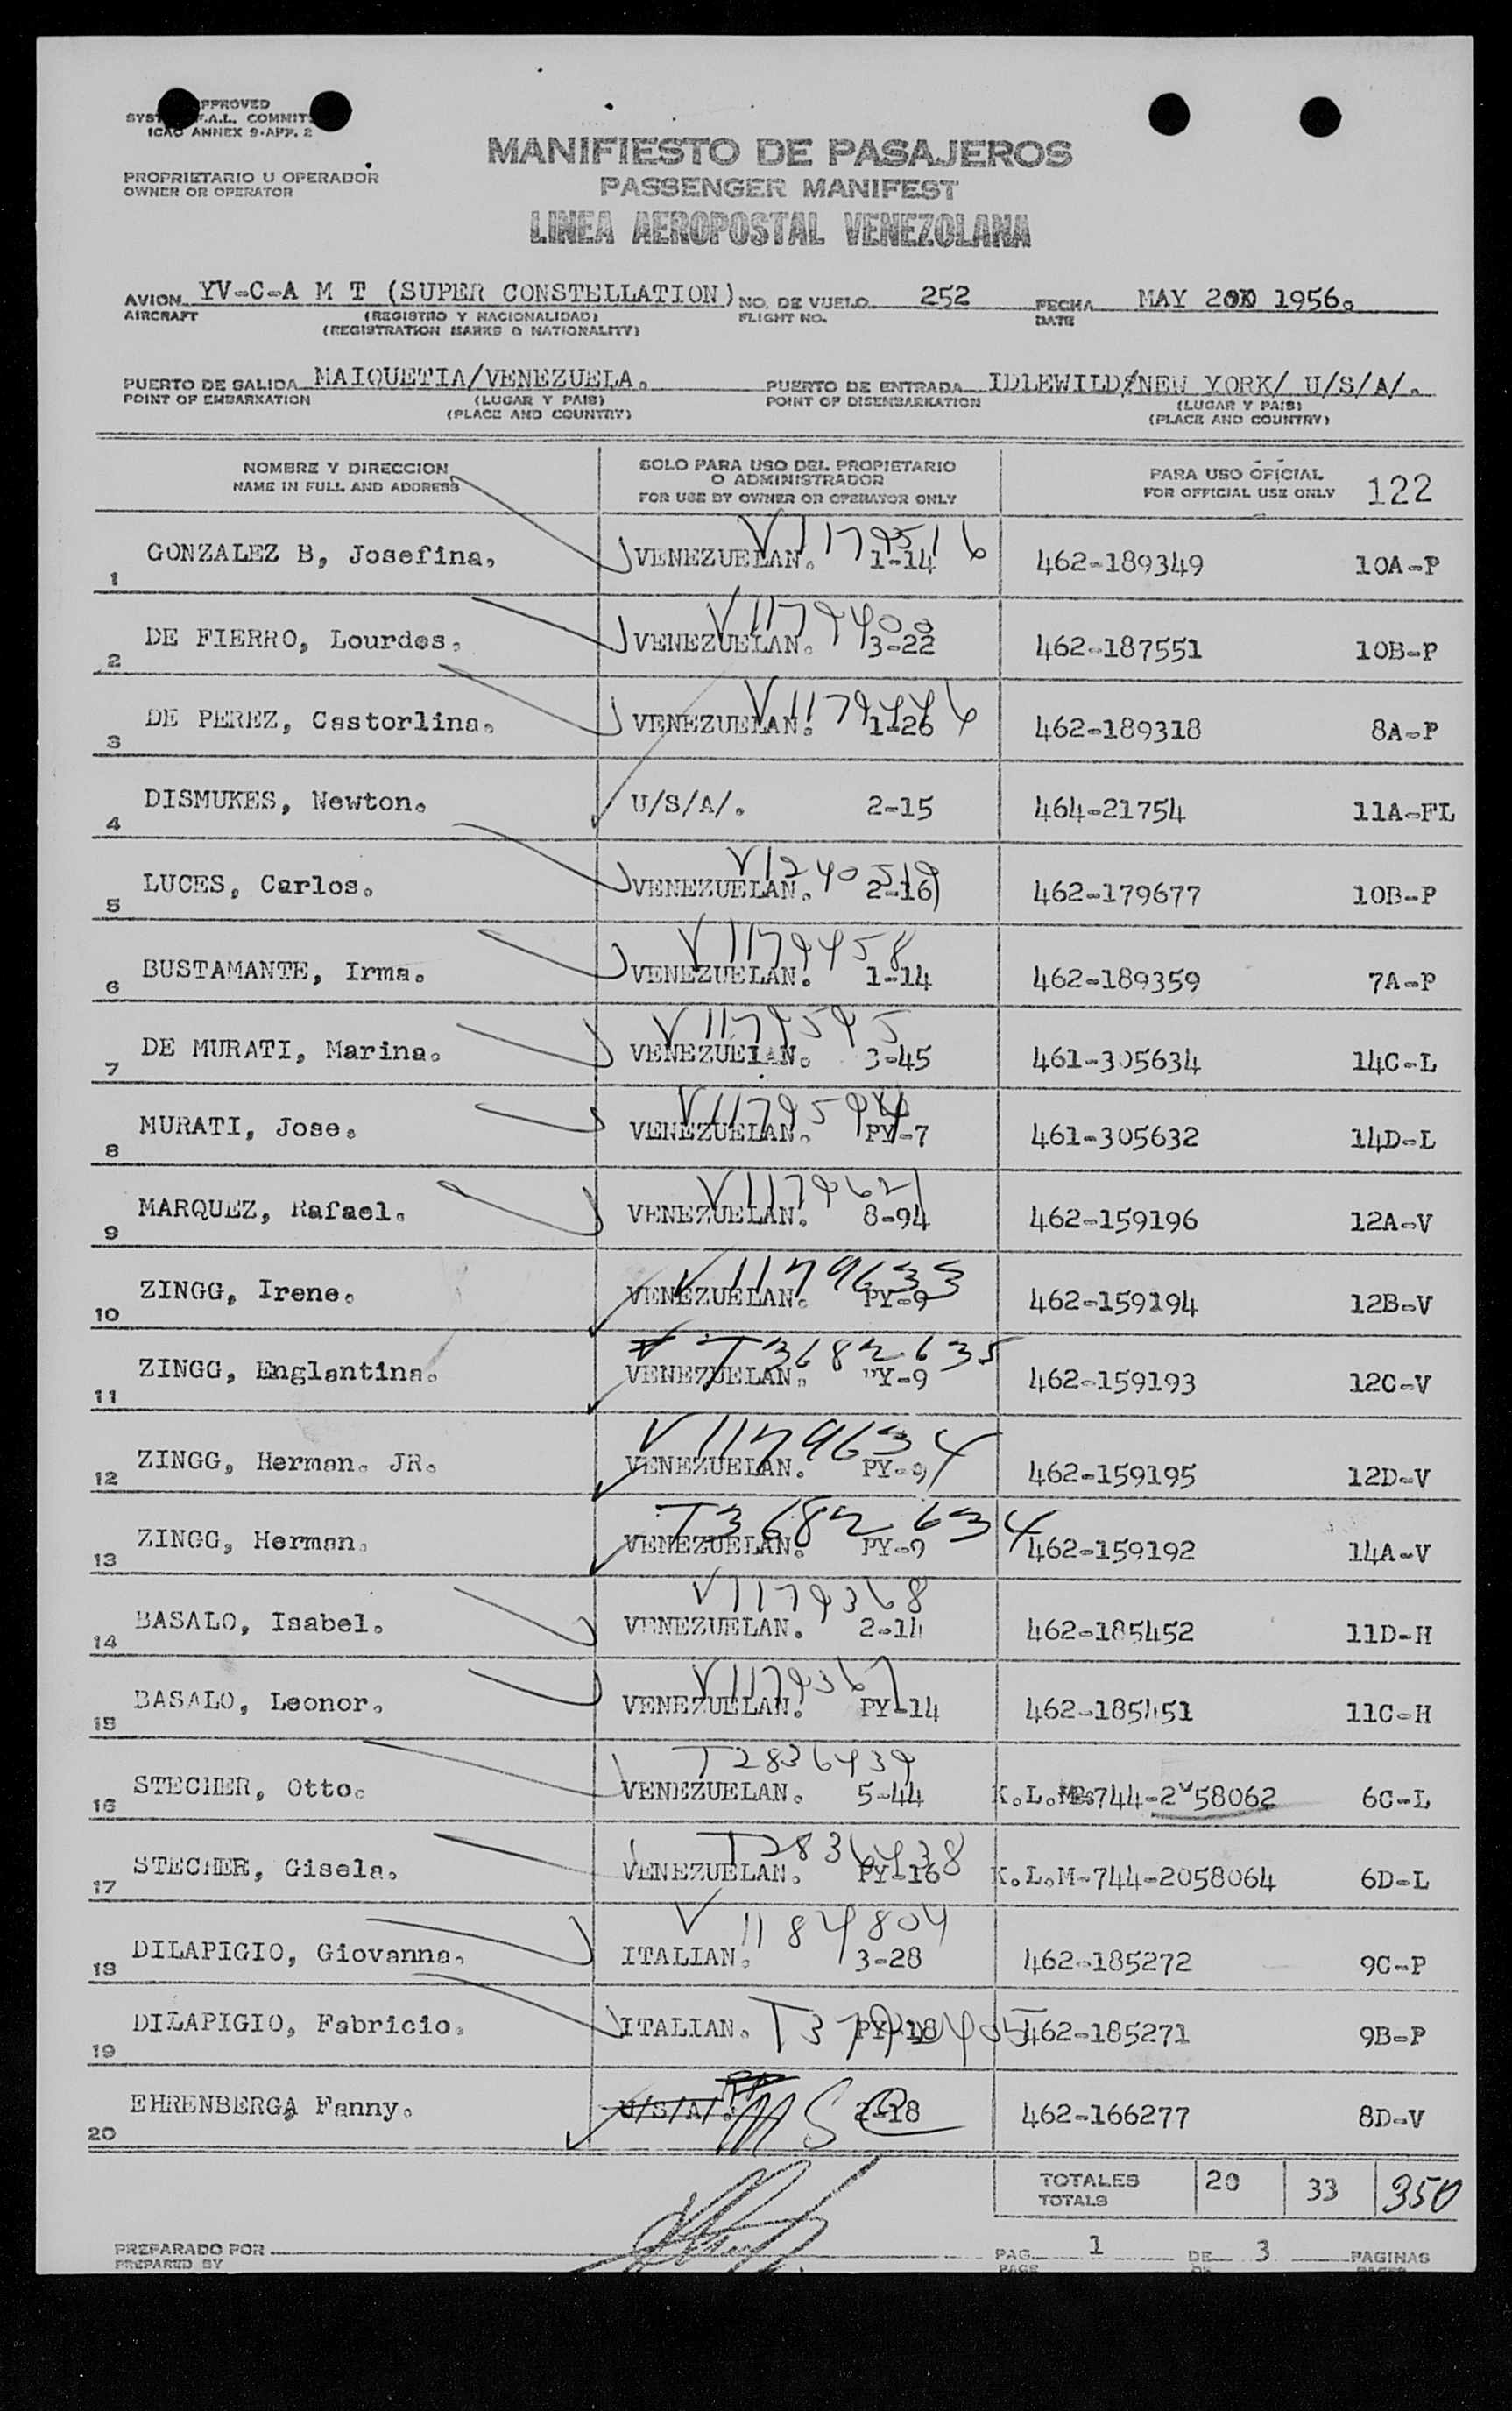 APPROVED
F.A.L. COMMIT
ICAO ANNEX 9-APP. 2
PROPRIETARIO U OPERADOR
OWNER OR OPERATOR
MANIFIESTO DE PASAJEROS
PASSENGER MANIFEST
LINEA AEROPOSTAL VENEZOLANA
AVION YV-C-A M T (SUPER CONSTELLATION) NO. DE VUELO 252 FECHA MAY 1956.
AIRCRAFT (REGISTRO Y NACIONALIDAD) FLIGHT NO. DATE
(REGISTRATION MARKS & NATIONALITY)
PUERTO DE SALIDA MAIQUETIA/VENEZUELA. PUERTO DE ENTRADA IDLEWILD/NEW YORK/ U/S/A/.
POINT OF EMBARKATION (LUGAR Y PAIS) POINT OF DISEMBARKATION (LUGAR Y PAIS)
(PLACE AND COUNTRY) (PLACE AND COUNTRY)
NOMBRE Y DIRECCION SOLO PARA USO DEL PROPIETARIO PARA USO OFICIAL
NAME IN FULL AND ADDRESS O ADMINISTRADOR FOR OFFICIAL USE ONLY 122
FOR USE BY OWNER OR OPERATOR ONLY
V1179516
1 GONZALEZ B, Josefina. VENEZUELAN. 1-14 462-189349 10A-P
V1179400
2 DE FIERRO, Lourdes. VENEZUELAN. 3-22 462-187551 10B-P
V1179446
3 DE PEREZ, Castorlina. VENEZUELAN. 1-26 462-189318 8A-P
4 DISMUKES, Newton. U/S/A/. 2-15 464-21754 11A-FL
V1240519
5 LUCES, Carlos. VENEZUELAN. 2-16 462-179677 10B-P
V1179458
6 BUSTAMANTE, Irma. VENEZUELAN. 1-14 462-189359 7A-P
V1179595
7 DE MURATI, Marina. VENEZUELAN. 3-45 461-305634 14C-L
8 MURATI, Jose. VENEZUELAN. PY-7 461-305632 14D-L
V1179621
9 MARQUEZ, Rafael. VENEZUELAN. 8-94 462-159196 12A-V
V1179633
10 ZINGG, Irene. VENEZUELAN. PY-9 462-159194 12B-V
T3682635
11 ZINGG, Englantina. VENEZUELAN. PY-9 462-159193 12C-V
V1179634
12 ZINGG, Herman. JR. VENEZUELAN. PY-9 462-159195 12D-V
T3682634
13 ZINGG, Herman. VENEZUELAN. PY-9 462-159192 14A-V
V1179368
14 BASALO, Isabel. VENEZUELAN. 2-14 462-185452 11D-H
V1179367
15 BASALO, Leonor. VENEZUELAN. PY-14 462-185451 11C-H
T2836439
16 STECHER, Otto. VENEZUELAN. 5-44 K.L.M 744-2058062 6C-L
T2836438
17 STECHER, Gisela. VENEZUELAN. PY-16 K.L.M-744-2058064 6D-L
V1184804
18 DILAPIGIO, Giovanna. ITALIAN. 3-28 462-185272 9C-P
19 DILAPIGIO, Fabricio. ITALIAN. PY-18 462-185271 9B-P
20 EHRENBERGA Fanny. U/S/A/. 2-18 462-166277 8D-V
TOTALES 20 33 350
TOTALS
PREPARADO POR PAG. 1 DE 3 PAGINAS
PREPARED BY PAGE